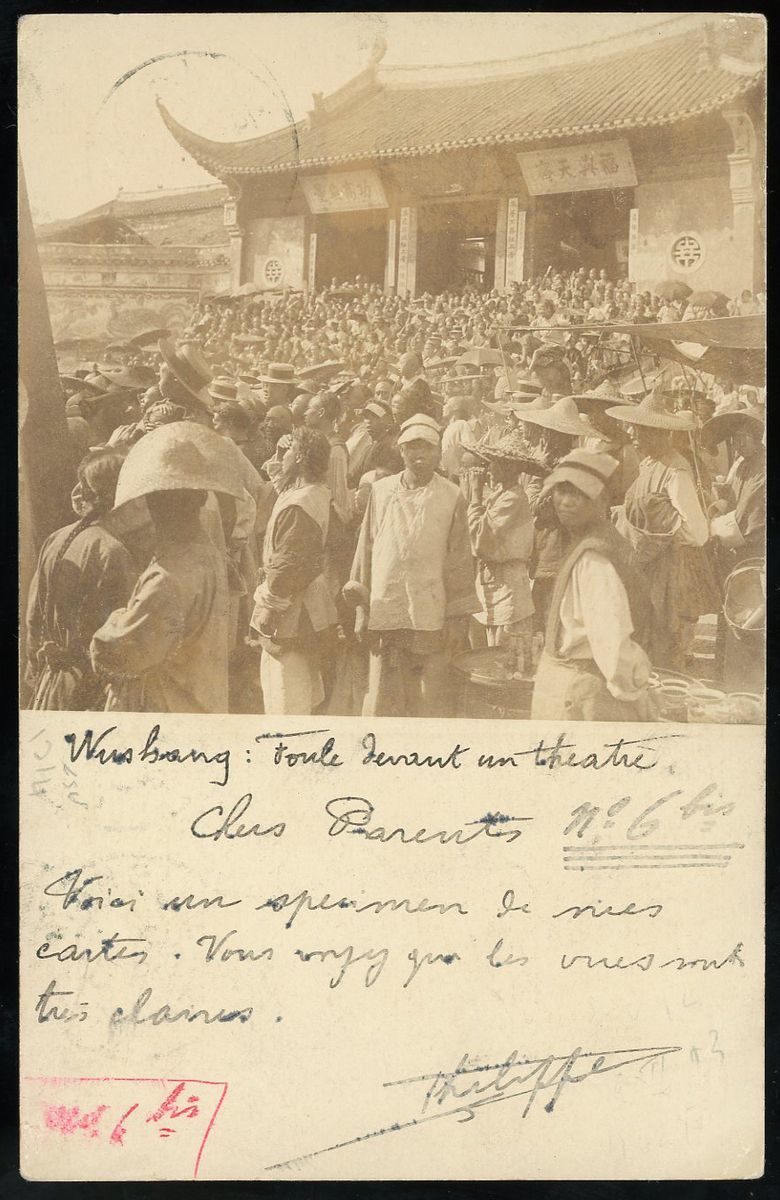 福興天齊
Wushang: Foule devant un theatre.
Chers Parents Nº 6 bis
Voici un specimen de mes
cartes. Vous voyez que les vues sont
très claires.
Philippe
6 bis